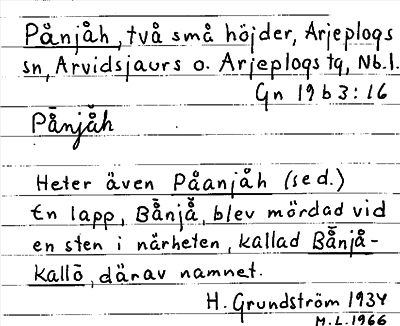 Pånjåh, två små höjder, Arjeplogs
sn, Arvidsjaurs o. Arjeplogs tg, Nb.l.
Gn 19 b 3:16
Pånjåh
Heter även Påanjåh (se d.)
En lapp, Bånjå, blev mördad vid
en sten i närheten, kallad Bånjå-
kallō, därav namnet.
H. Grundström 1934
M.L. 1966